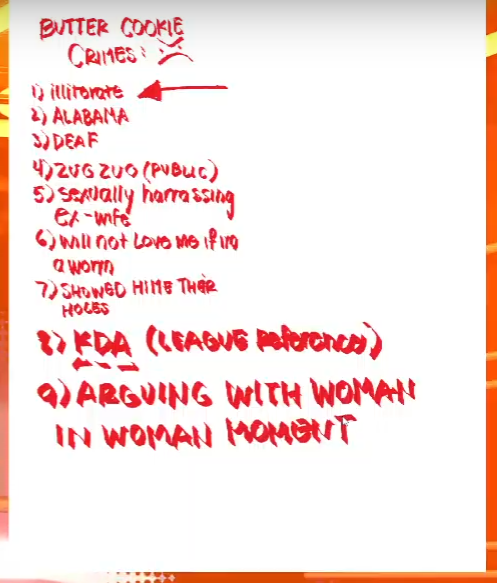 BUTTER COOKIE
CRIMES:
1) illiterate
2) ALABAMA
3) DEAF
4) ZUG ZUG (PUBLIC)
5) sexually harrassing
ex-wife
6) will not Love me if im
a worm
7) SHOWED HIME THEIR
HOLES
8) KDA (LEAGUE Reference)
9) ARGUING WITH WOMAN
IN WOMAN MOMENT